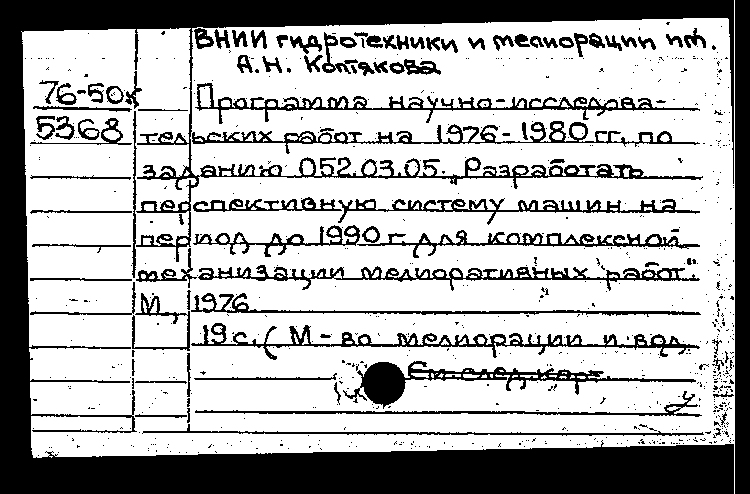 ВНИИ гидротехники и мелиорации им.
А.Н. Костякова
76-50к
Программа научно-исследова-
5368
тельских работ на 1976-1980 гг. по
заданию 052.03.05. „Разработать
перспективную систему машин на
период до 1990 г. для комплексной
механизации мелиоративных работ".
М., 1976.
19 с. (М-во мелиорации и вод.
См. след. карт.